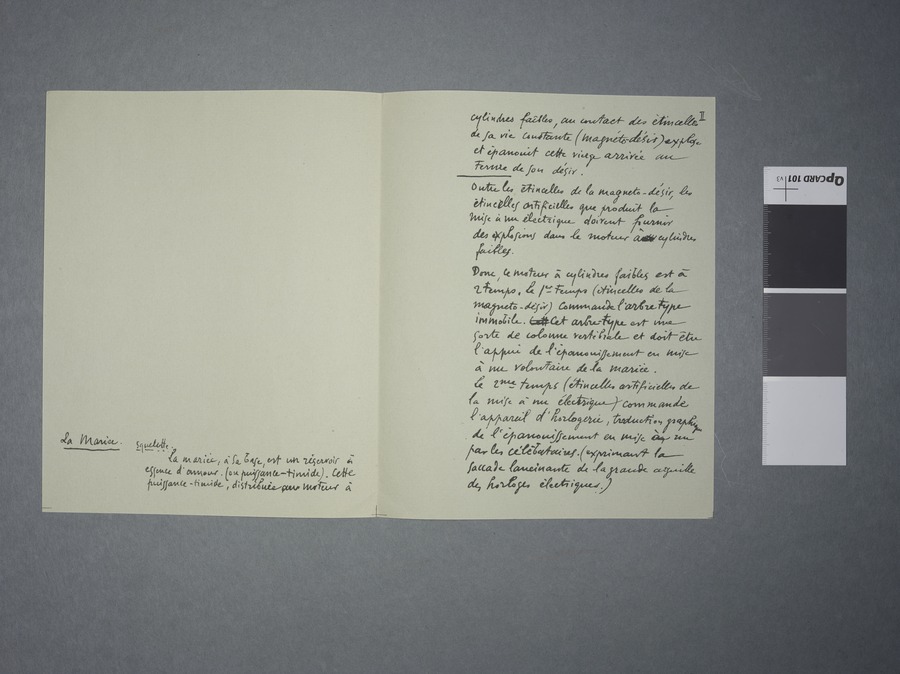 La Mariée. Squelette.
La mariée, à sa base, est un réservoir à
essence d'amour. (ou puissance-timide). Cette
puissance-timide, distribuée au moteur à
II
cylindres faibles, au contact des étincelles
de sa vie constante (magnéto-désir) explose
et épanouit cette vierge arrivée au
terme de son désir.
Outre les étincelles de la magneto-désir, les
étincelles artificielles que produit la
mise à nu électrique doivent fournir
des explosions dans le moteur à cylindres
faibles.
Donc, le moteur à cylindres faibles est à
2 temps. le 1er temps (étincelles de la
magneto-désir) commande l'arbre-type
immobile. Cet arbre-type est une
sorte de colonne vertébrale et doit être
l'appui de l'épanouissement en mise
à nu volontaire de la mariée.
Le 2me temps (étincelles artificielles de
la mise à nu électrique) commande
l'appareil d'horlogerie, traduction graphique
de l'épanouissement en mise à nu
par les célibataires. (exprimant la
saccade lancinante de la grande aiguille
des horloges électriques.)
QPCARD 101 v3